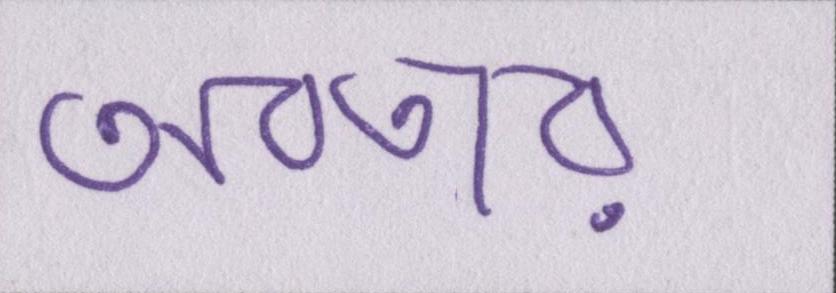 অবতার